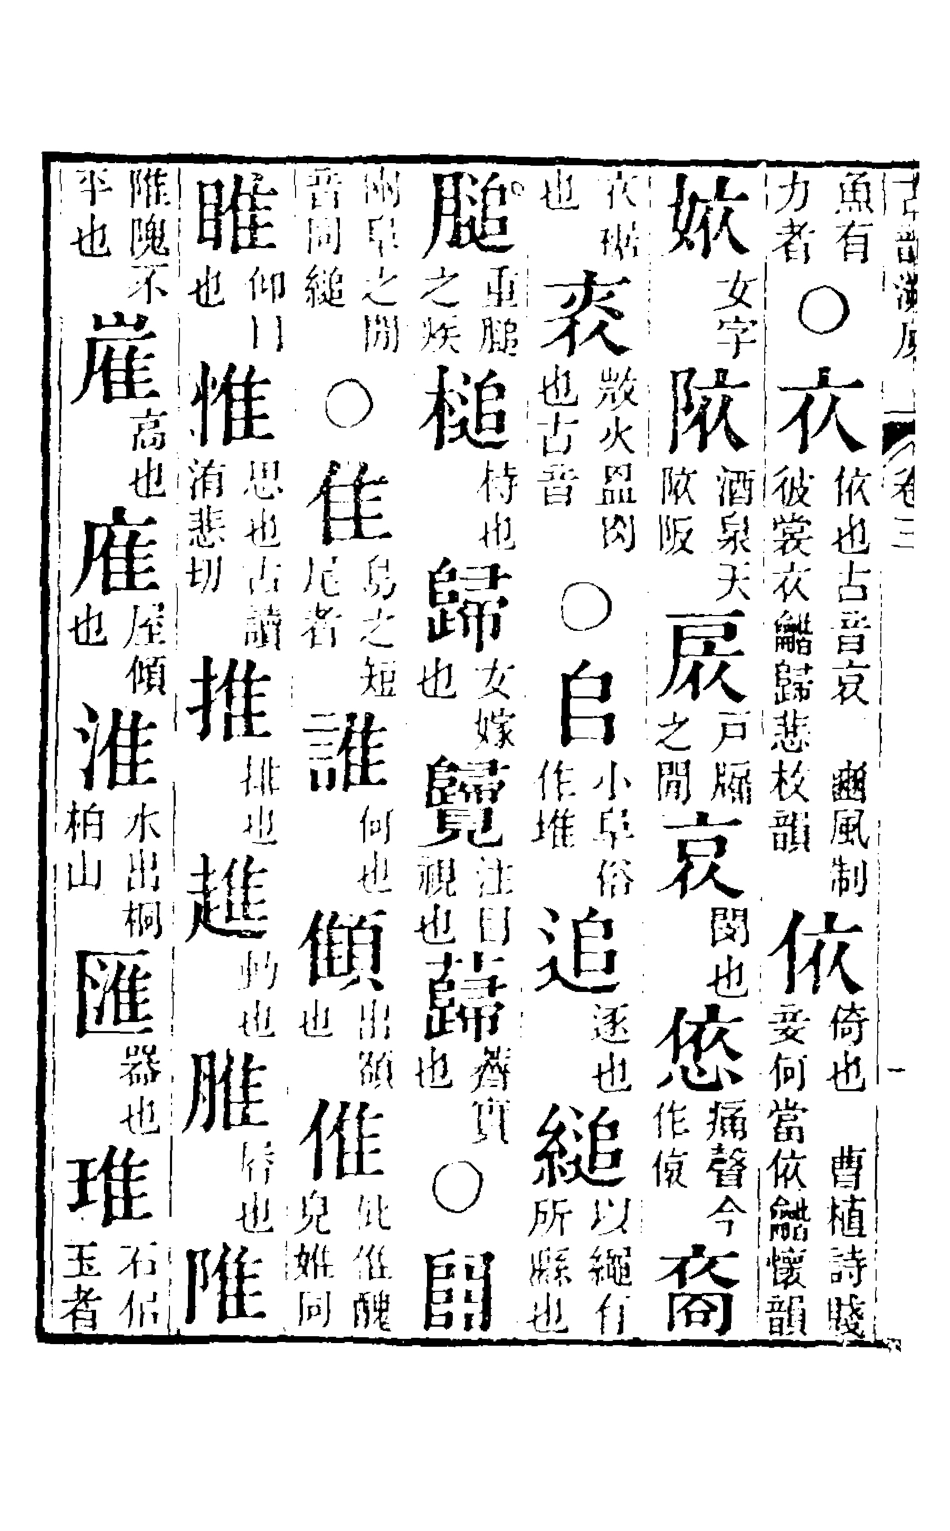 古韻溯原 卷三 一
魚有力者〇衣依也古音哀 豳風制彼裳衣龤歸悲枚韻依倚也 曹植詩賤妾何當依龤懷韻
㛄女字陙酒泉天陙阪扆戶牖之閒哀閔也㥋痛聲今作偯裔
衣裾也裵㷉火温肉也古音〇𠂤小𨸏俗作堆追逐也縋以繩有所縣也
膇重膇之疾槌持也歸女嫁也覾注目視也蘬薺實也〇𨺅
兩𨸏之閒音同縋〇隹鳥之短尾者誰何也顀出額也倠仳倠醜皃婎同
睢仰目也惟思也古讀洧悲切推排也趡動也脽𡱂也陮
陮隗不平也嶉高也䧹屋傾也淮水出桐柏山匯器也琟石佀玉者